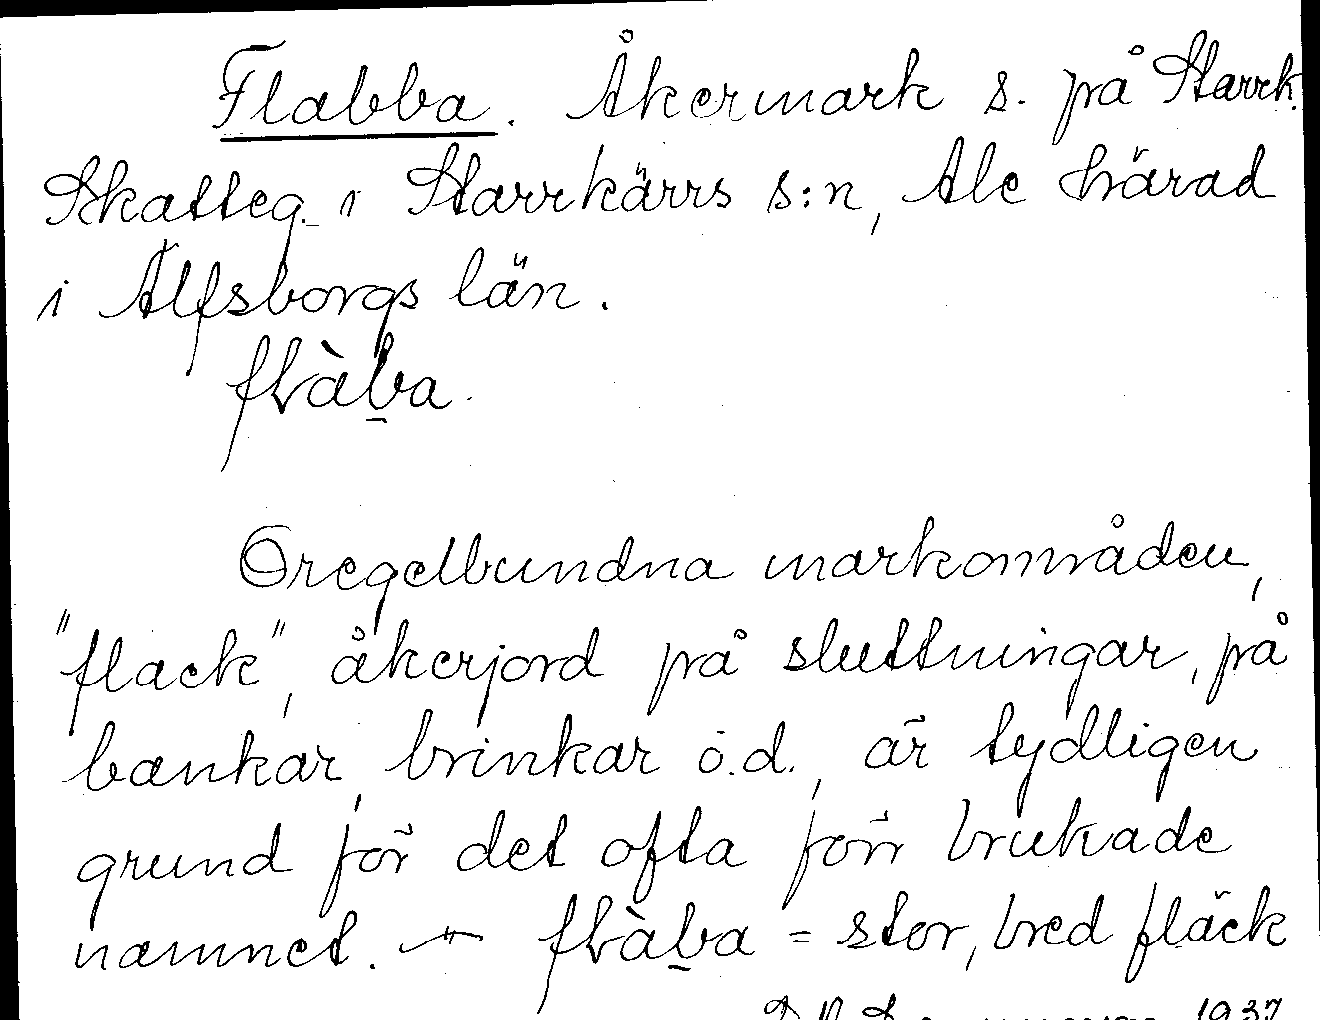 Flabba. Åkermark s. på Starrk.
Skatteg. i Starrkärrs s:n, Ale härad
i Älfsborgs län.
flàb̲a.
Oregelbundna markområden,
"flack", åkerjord på sluttningar, på
bankar, brinkar o.d., är tydligen
grund för det ofta förr brukade
namnet. — flàb̲a = stor, bred fläck
1937